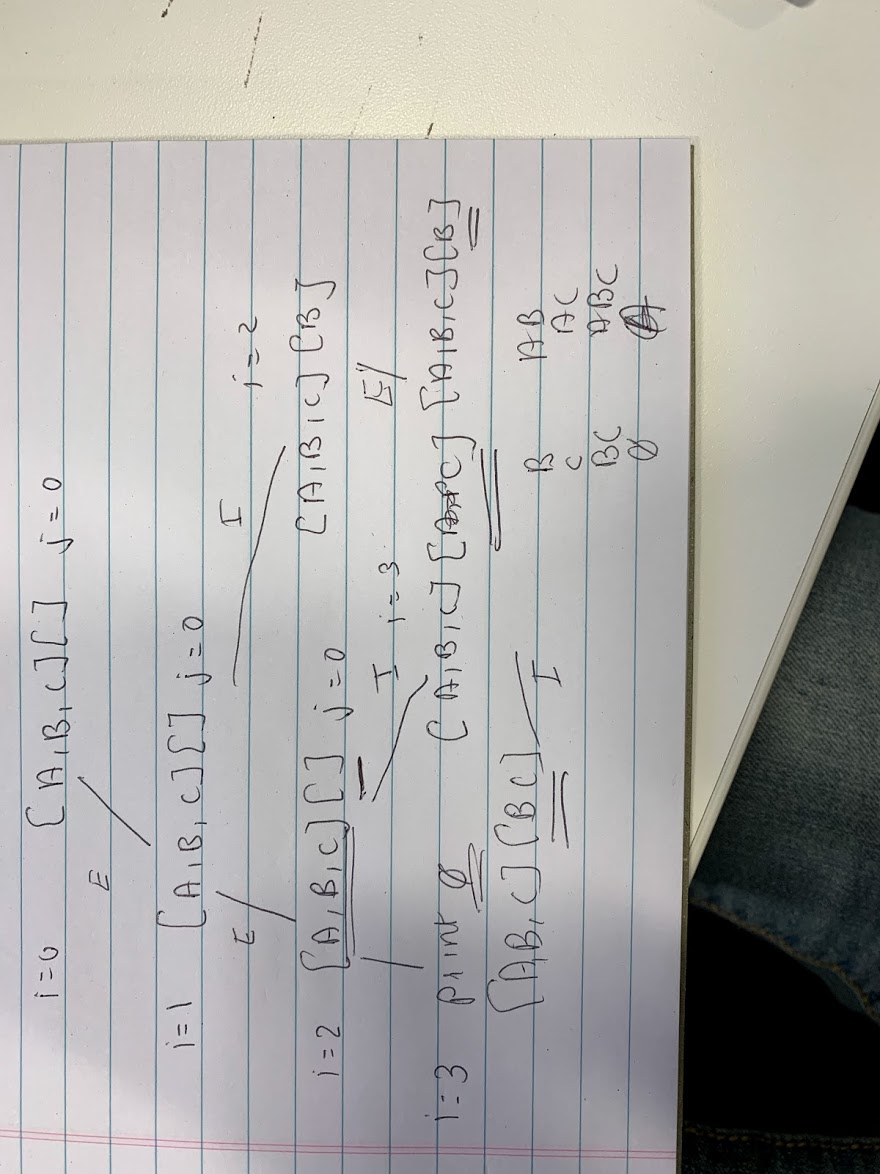 i=0 [A,B,C][] j=0
E
i=1 [A,B,C][] j=0
E I i=2
i=2 [A,B,C][] j=0 [A,B,C][B]
I i=3 E
i=3 print ∅ [A,B,C][C] [A,B,C][B]
[A,B,C][BC] I
B AB
C AC
BC ABC
∅ A